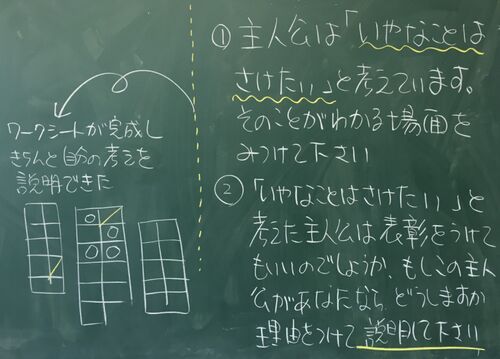 ①主人公は「いやなことは
さけたい」と考えています。
そのことがわかる場面を
みつけて下さい
②「いやなことはさけたい」と
考えた主人公は表彰をうけて
もいいのでしょうか、もしこの主人
公があなたなら、どうしますか
理由をつけて説明して下さい
ワークシートが完成し
きちんと自分の考えを
説明できた